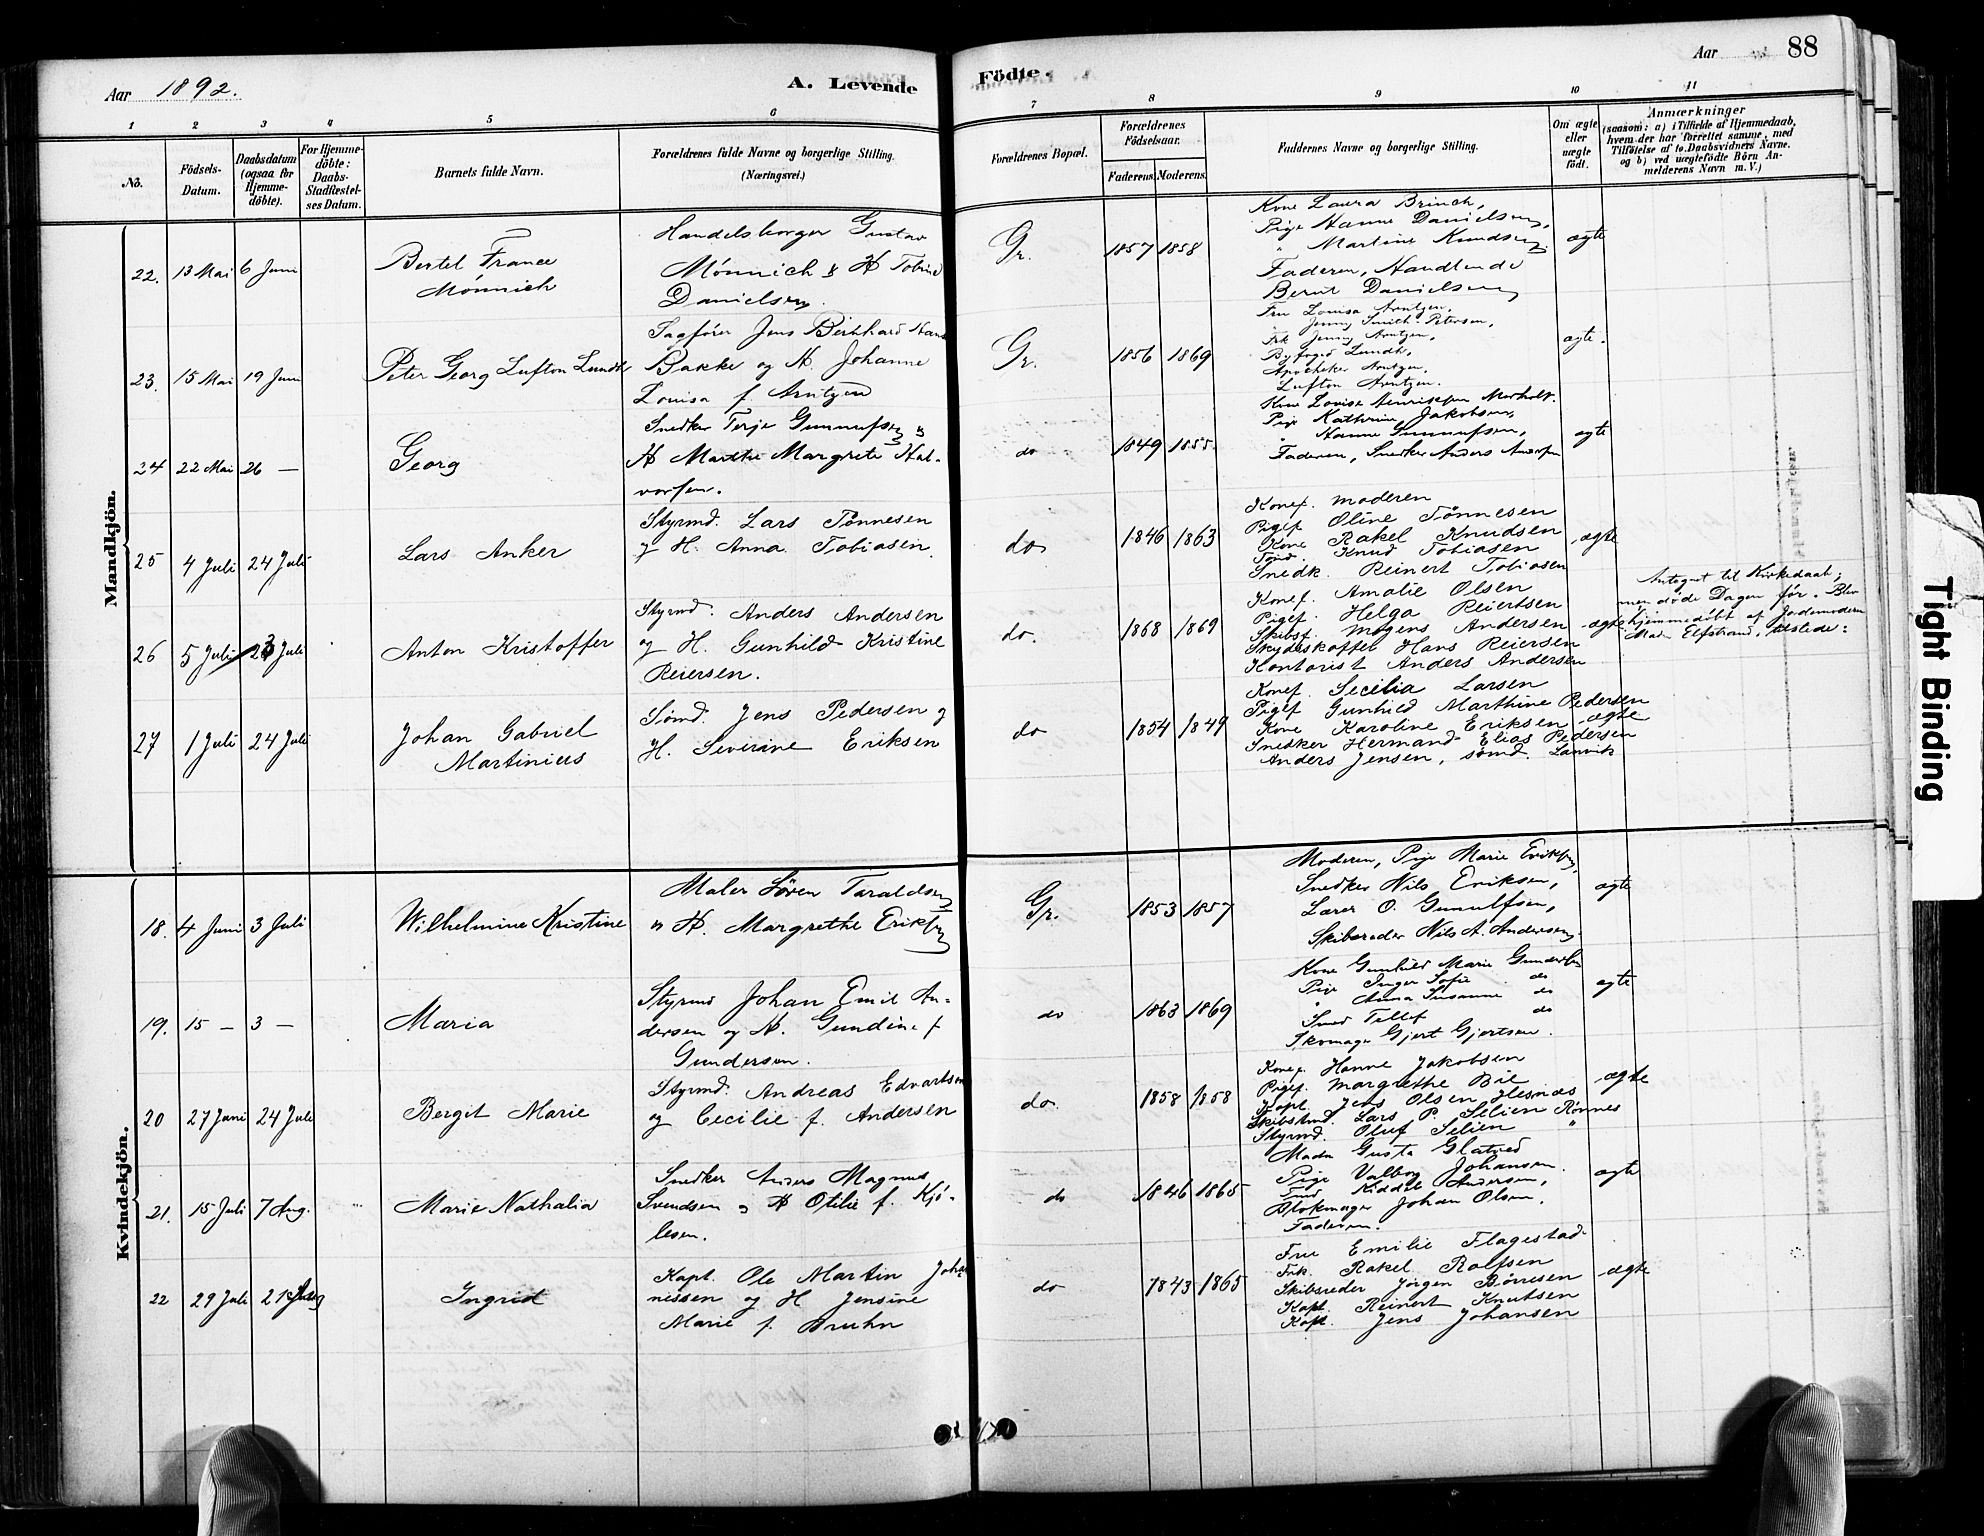 Aar 1892.
A. Levende
Födte.
Aar
88
1 2 3 4 5 6 7 8 9 10 11
No.
Födsels-
Datum.
Daabsdatum
(ogsaa for
Hjemme-
döbte).
For Hjemme-
döbte:
Daabs-
Stadfestel-
ses Datum.
Barnets fulde Navn.
Forældrenes fulde Navne og borgerlige Stilling.
(Næringsvei.)
Forældrenes Bopæl.
Forældrenes
Födselsaar.
Faderens. Moderens.
Faddernes Navne og borgerlige Stilling.
Om ægte
eller
uægte
födt.
Anmærkninger
(saasom: a) i Tilfælde af Hjemmedaab,
hvem der har forrettet samme, med
Tilföielse af to Daabsvidners Navne.
og b) ved uægtefödte Börn An-
melderens Navn m. V.)
Mandkjön.
22. 13 Mai 6 Juni
Bertel France
Mönnich
Handelsborger Gustav
Mönnich & H Tobine
Danielsen.
Gr.
1857 1858
Kone Laura Brinch,
Pige Hanne Danielsen,
" Martine Knudsen,
Faderen, Handlende
Bernt Danielsen
ægte
23. 15 Mai 19 Juni
Peter Georg Lufton Lundh
Sagförer Jens Bernhard Hans
Bakke og H. Johanne
Louisa f. Arntzen
Gr.
1856 1869
Fru Louisa Arntzen,
" Jenny Smith-Petersen,
Frk Jenny Arntzen,
Byfoged Lundh,
Apotheker Arntzen,
Lufton Arntzen.
ægte.
24 22 Mai 26 —
Georg
Snedker Terje Gunnufsen &
H Marthe Margrete Hal-
vorsen.
do
1849 1855.
Kone Lovise Henriksen Morholt.
Pige Kathrine Jakobsen,
" Hanne Gunnufsen,
Faderen, Snedker Anders
ægte
25 4 Juli 24 Juli
Lars Anker
Styrmd. Lars Tönnesen
og H. Anna Tobiasen
do
1846 1863
Konef. Moderen
Pigef Oline Tönnesen
Kone Rakel Knudsen
Knud Tobiasen
Snedk. Reinert Tobiasen
ægte
26 5 Juli 23 Juli
Anton Kristoffer
Styrmd. Anders Andersen
og H. Gunhild Kristine
Reiersen.
do.
1868 1869
Konef. Amalie Olsen
Pigef. Helga Reiertsen
Skibsf. Mogens Andersen
Skydeskaffer Hans Reiersen
Kontorist Anders Andersen
ægte
Antegnet til Kirkedaab;
men döde Dagen för. Blev
hjemmedöbt af Jordemoderen
Mad. Elfstrand, tilstede:
27 1 Juli 24 Juli
Johan Gabriel
Martinius
Sömd. Jens Pedersen og
H. Severine Eriksen
do
1854 1849
Konef. Secilia Larsen
Pigef Gunhild Marthine Pedersen
Kone Karoline Eriksen
Snedker Hermand Elias Pedersen
Anders Jensen, sömd. Lanvik
ægte
Kvindekjön.
18. 4 Juni 3 Juli
Wilhelmine Kristine
Maler Sören Taraldsen
& H. Margrethe Eriksen
Gr.
1853 1857
Moderen, Pige Marie Eriksen,
Snedker Nils Eriksen,
Lærer O. Gunulfsen,
Skibsreder Nils A. Andersen.
ægte
19. 15 — 3 —
Maria
Styrmd Johan Emil An-
dersen og H. Gundine f
Gundersen.
do
1863 1869
Kone Gunhild Marie Gundersen
Pige Inger Sofie do
" Anna Susanne do
Smed Tellef do
Skomager Gjert Gjertsen.
ægte
20 27 Juni 24 Juli
Bergit Marie
Styrmd. Andreas Edvartsen
og Cecilie f. Andersen
do.
1858 1858
Konef. Hanne Jakobsen
Pigef. Margrethe Bie
Kapt. Jens Olsen Hesnæs
Skibstmd. Lars P. Selien Rönnes
Styrmd. Oluf Selien "
ægte
21. 15 Juli 7 Aug.
Marie Nathalia
Snedker Anders Magnus
Svendsen og H Otilie f. Kjö-
lesen.
do
1846 1865
Mada Gusta Glatved
Pige Valborg Johansen.
Kiddel Andersen,
Blokmager Johan Olsen.
Faderen.
ægte
22 29 Juli 21 Aug
Ingrid
Kapt. Ole Martin Joha
nissen og H Jensine
Marie f. Bruhn
do
1843 1865
Fru Emilie Flagestad
Frk. Rakel Rolfsen
Skibsreder Jörgen Börresen
Kapt. Reinert Knutsen
Kapt. Jens Johansen
ægte
Tight Binding